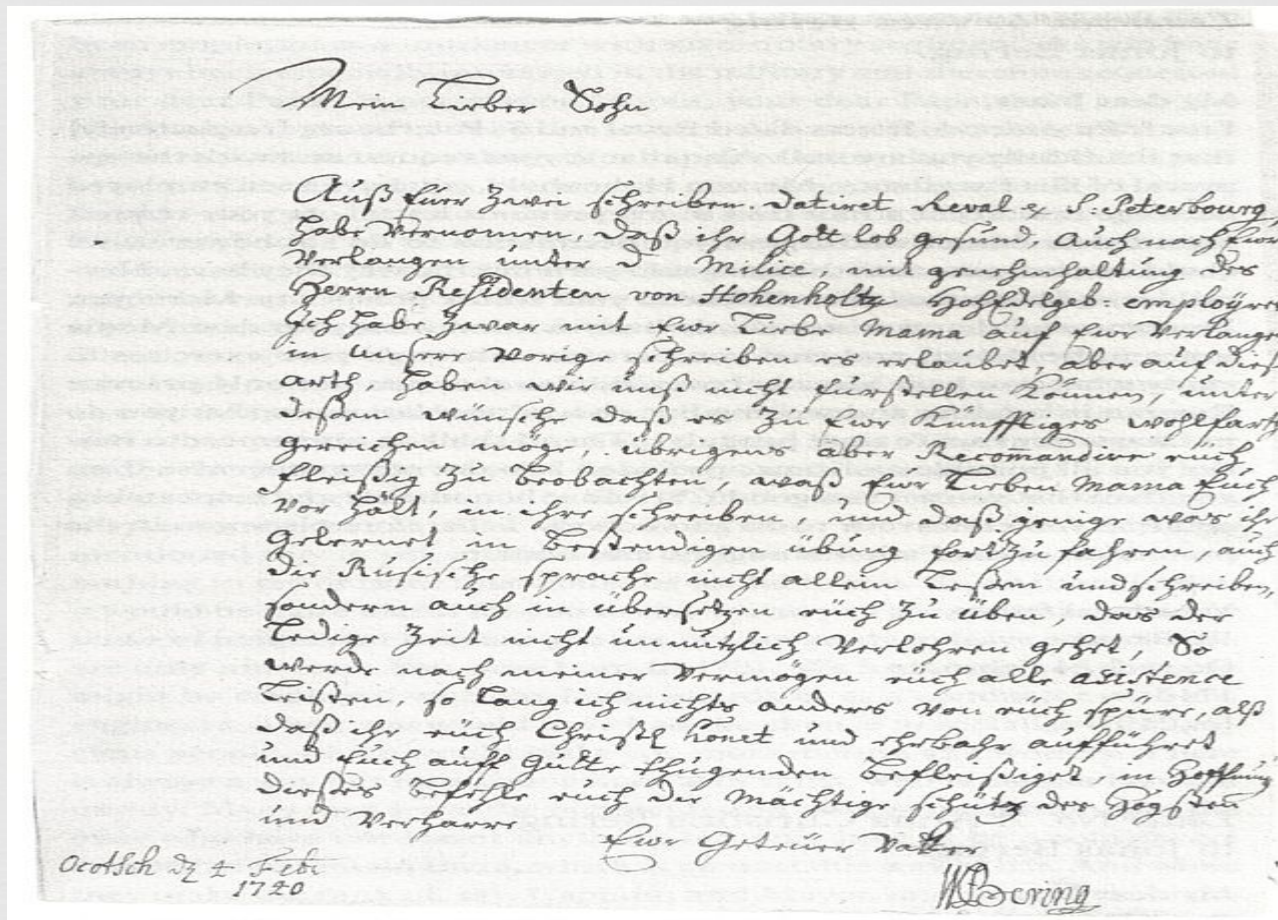 Mein Lieber Sohn
Auß Euer zwei schreiben. datiret Reval & S. Peterbourg,
habe vernomen, daß ihr Gott lob gesund, auch nach Ewr
verlangen unter d. Milice, mit genehmhaltung des
Herrn Residenten von Hohenholtz HochEdelgeb: employret
Ich habe zwar mit Ewr Liebe Mama auf Ewr verlangen
in unsere vorige schreiben es erlaubet, aber auf dies
arth haben wir unß nicht fürstellen können, unter
deßen wünsche daß es zu Ewr Künfftiges wohlfart
gereichen möge, übrigens aber Recommandire euch
fleißig zu beobachten, waß Ewr Lieben Mama Euch
vor hält, in ihre schreiben, und daß jenige was ihr
gelernet in bestendiger übung fort zu fahren, auch
die Rusische sprache nicht allein leßen und schreiben,
sondern auch in übersetzen euch zu üben, das der
ledige Zeit nicht unnützlich verlohren gehet, So
werde nach meiner vermögen euch alle asistence
leisten, so lang ich nichts anders von euch spüre, alß
daß ihr euch Christl. und ehrbahr aufführet
und Euch auff gutte thugenden befleißiget, in Hoffnung
dieses befehle euch die Mächtige schütz des Högsten
und verharre
Ewr Getreuer Vatter
WBering
Ocotsch dz 4 Febr
1740